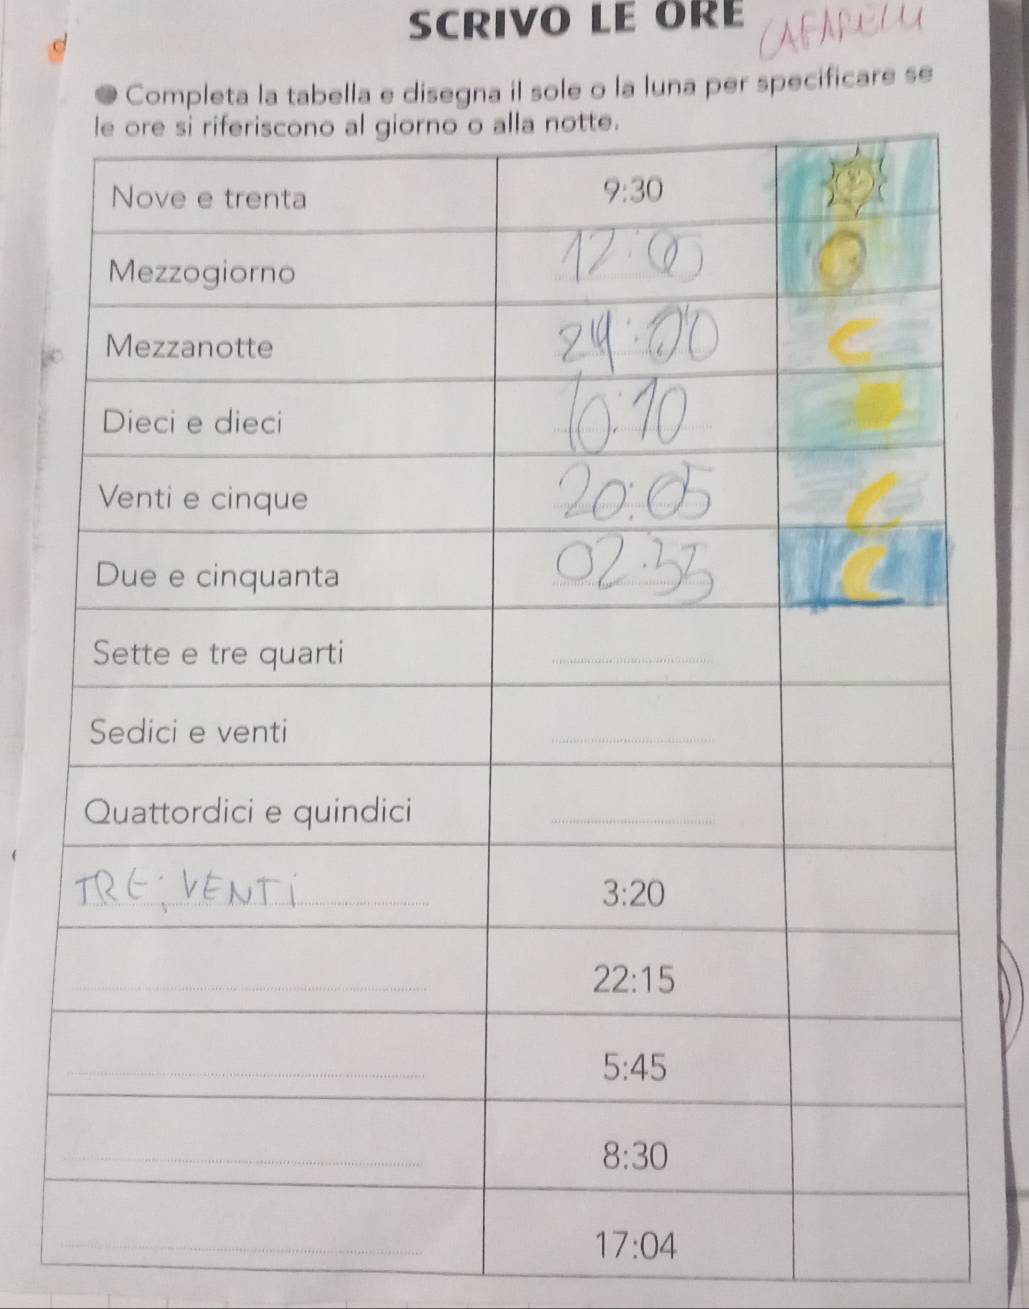 SCRIVO LE ORE CAFARELLI
d
Completa la tabella e disegna il sole o la luna per specificare se
le ore si riferiscono al giorno o alla notte.
Nove e trenta 9:30
Mezzogiorno 12:00
Mezzanotte 24:00
Dieci e dieci 10:10
Venti e cinque 20:05
Due e cinquanta 02:55
Sette e tre quarti
Sedici e venti
Quattordici e quindici
TRE; VENTI 3:20
22:15
5:45
8:30
17:04